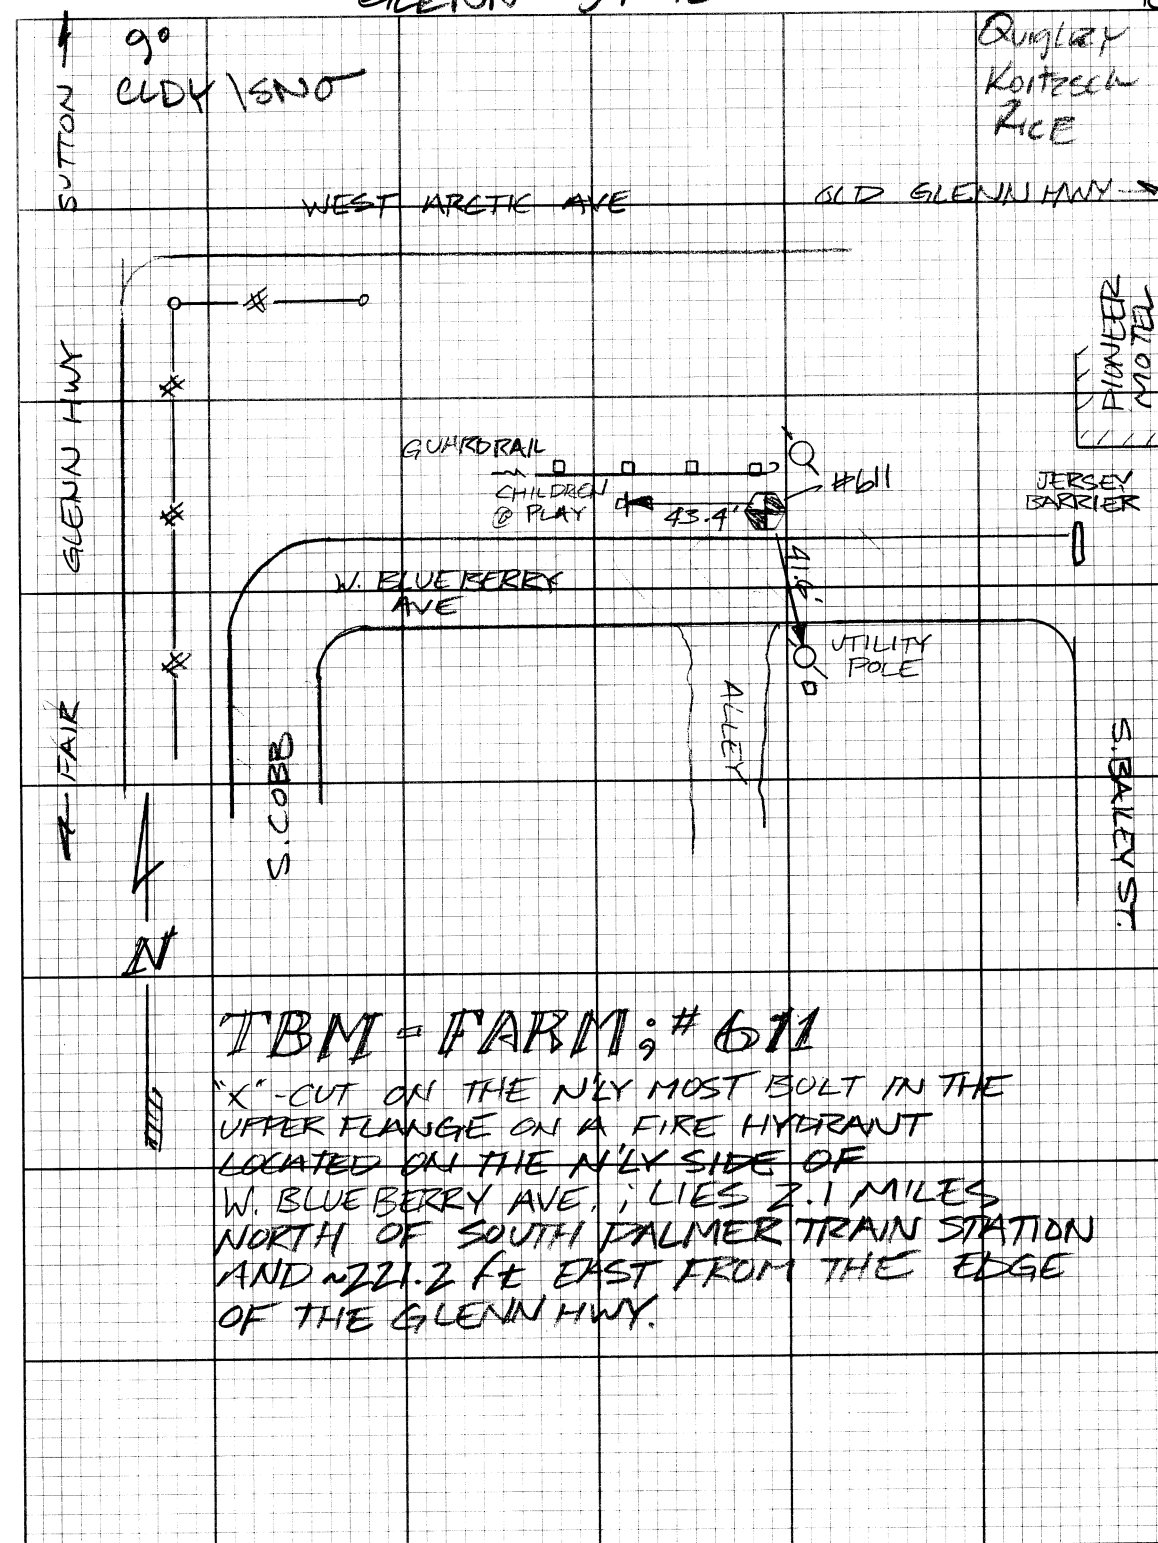 GLENN 34-42
SUTTON
9°
CLDY \ SNO
Quigley
Koitzsch
RICE
WEST ARCTIC AVE
OLD GLENN HWY
PIONEER
MOTEL
GLENN HWY
GUARDRAIL
CHILDREN
@ PLAY
43.4'
#611
JERSEY
BARRIER
41.6'
W. BLUEBERRY
AVE
UTILITY
POLE
ALLEY
FAIR
S. COBB
S. BAILEY ST.
N
TBM - FARM; # 611
"X"-CUT ON THE N'LY MOST BOLT IN THE
UPPER FLANGE ON A FIRE HYDRANT
LOCATED ON THE N'LY SIDE OF
W. BLUEBERRY AVE. ; LIES 2.1 MILES
NORTH OF SOUTH PALMER TRAIN STATION
AND ~221.2 ft EAST FROM THE EDGE
OF THE GLENN HWY.